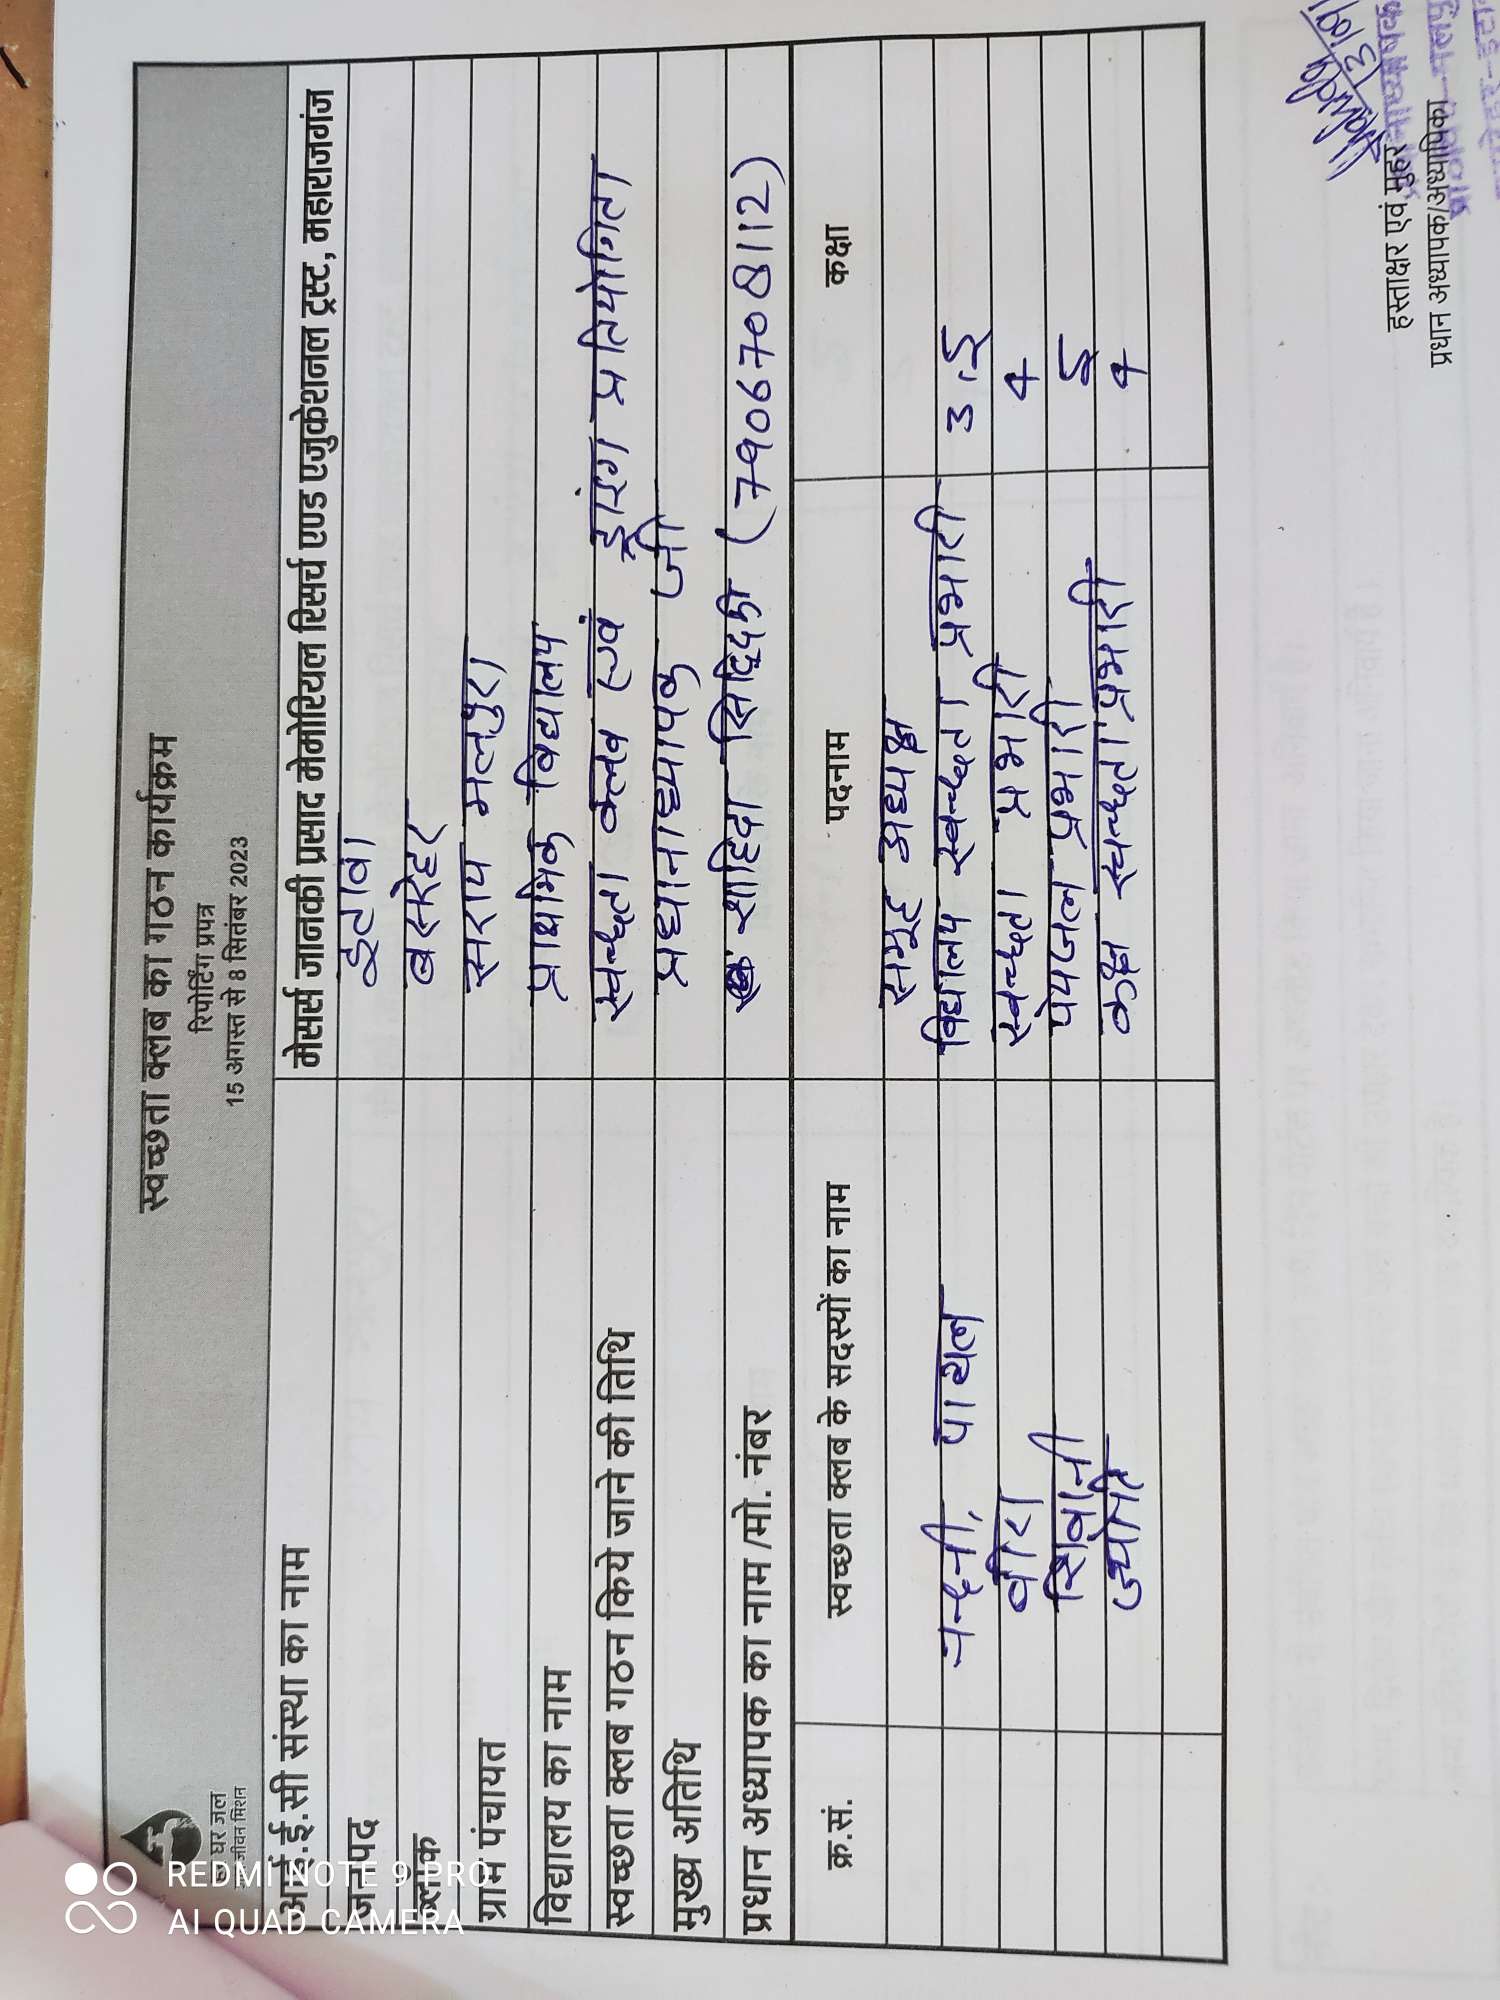 स्वच्छता क्लब का गठन कार्यक्रम
रिपोर्टिंग प्रपत्र
15 अगस्त से 8 सितंबर 2023
घर जल
जीवन मिशन
आई.ई.सी संस्था का नाम मेसर्स जानकी प्रसाद मेमोरियल रिसर्च एण्ड एजुकेशनल ट्रस्ट, महाराजगंज
जनपद इटावा
ब्लॉक बसरेहर
ग्राम पंचायत सराय मलपुरा
विद्यालय का नाम प्राथमिक विद्यालय
स्वच्छता क्लब गठन किये जाने की तिथि स्वच्छता क्लब एवं ड्राइंग प्रतियोगिता
मुख्य अतिथि प्रधानाध्यापक जी
प्रधान अध्यापक का नाम /मो. नंबर शाहिदा सिद्दिकी (7906708112)
क्र.सं. स्वच्छता क्लब के सदस्यों का नाम पदनाम कक्षा
समूह अध्यक्ष
नन्दनी, पायल विद्यालय स्वच्छता प्रभारी 3,5
स्वच्छता प्रभारी 4
शिवानी पेयजल प्रभारी 5
ज्योति कक्ष स्वच्छता प्रभारी 4
हस्ताक्षर एवं मुहर
प्रधान अध्यापक/अध्यापिका
REDMI NOTE 9 PRO
AI QUAD CAMERA